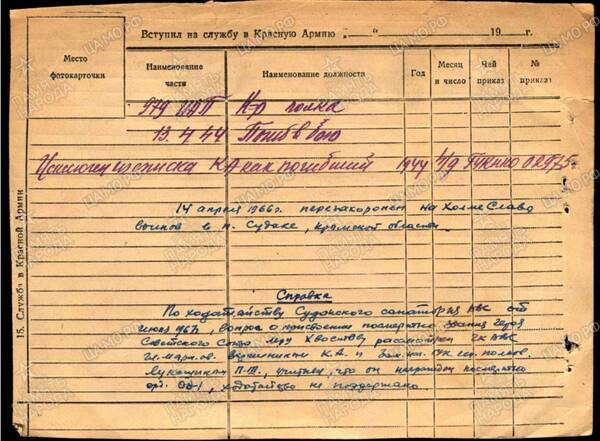 Вступил на службу в Красную Армию „___“ 19__ г.
Место фотокарточки
Наименование части
Наименование должности
Год
Месяц и число
Чей приказ
№ приказа
979 ИАП К-р полка
13.4.44 Погиб в бою
Исключен из списка КА как погибший 1944 ГУКНКО 02975
14 апреля 1966г. перезахоронен на Холме Славы
воинов в п. Судаке, Крымской области
Справка
По ходатайству Судакского санатория ВВС от
июня 1967, вопрос о присвоении посмертно звания Героя
Советского Союза м-ру Хвостову рассмотрен ГК ВВС
гл. марш. ав. Вершининым К.А. и ген. полков.
П.Т., учитывая, что он награжден посмертно
орд. ОВ-I, ходатайство не поддержано.
15. Служба в Красной Армии
ПАМЯТЬ НАРОДА
ЦАМО.РФ